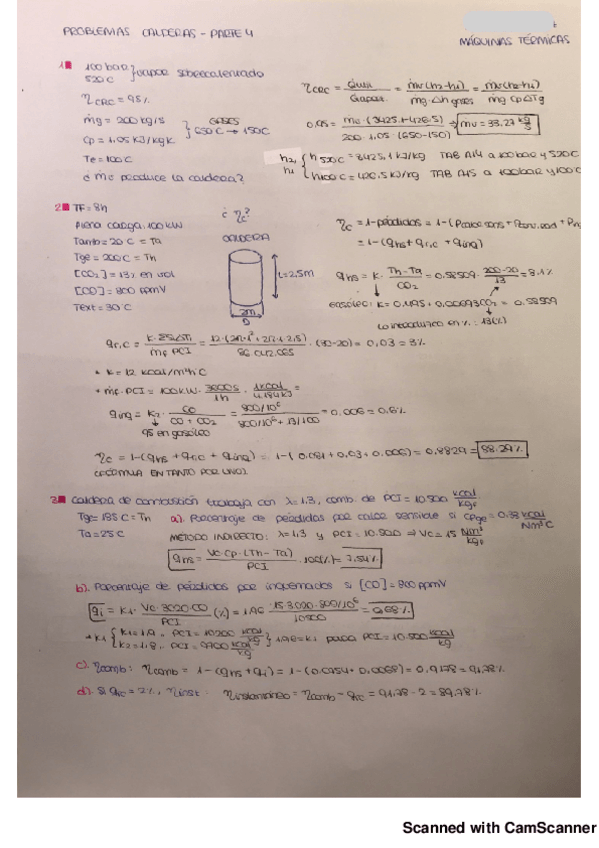 PROBLEMAS CALDERAS - PARTE 4
MÁQUINAS TÉRMICAS
1 100 bar } vapor sobrecalentado
520 C
η CRC = 95%
ṁg = 200 kg/s } GASES 650 C → 150 C
Cp = 1.05 KJ/kg K
Te = 100 C
¿ ṁv produce la caldera?
η CRC = Q̇util / Q̇aport. = ṁv (h2-h1) / ṁg · Δh gases = ṁv (h2-h1) / ṁg Cp ΔTg
0.95 = ṁv · (3425.1 + 426.5) / 200 · 1.05 · (650-150) ⇒ ṁv = 33.27 kg/s
h2, { h 520 C = 3425.1 kJ/kg TAB A14 a 100 bar y 520 C
h1 h 100 C = 426.5 kJ/kg TAB A15 a 100 bar y 100 C
2 TF = 8h
Plena carga: 100 KW
Tamb = 20 C = Ta
Tge = 200 C = Th
[CO2] = 13% en vol
[CO] = 800 ppmV
Text = 30 C
¿ ηc?
CALDERA
L = 2.5m
2m
D
ηc = 1 - pérdidas
= 1 - (qhs + qr,c + qinq)
qhs = K · Th - Ta / CO2 = 0.58509 · 200-20 / 13 = 8.1%
gasóleo: K = 0.495 + 0.00693 CO2 = 0.58509
lo introduzco en % : 13(%)
qr,c = K · ΣSi ΔTi / ṁf PCI = 12 · (2π·1² + 2π·1·2.5) / 86.042.065 · (30-20) = 0.03 = 3%
• K = 12 kcal/m²h C
• ṁf · PCI = 100 KW · 3600s / 1h · 1 kcal / 4.184 kJ =
qinq = K2 · CO / CO + CO2 = 800/10⁶ / 800/10⁶ + 13/100 = 0.006 = 0.6%
95 en gasóleo
ηc = 1 - (qhs + qr,c + qinq) = 1 - (0.081 + 0.03 + 0.006) = 0.8829 = 88.29%
(FÓRMULA EN TANTO POR UNO)
3 Caldera de combustión trabaja con λ = 1.3, comb de PCI = 10.500 kcal/kgf
Tge = 185 C = Th
Ta = 25 C
a). Porcentaje de pérdidas por calor sensible si cpge = 0.33 kcal/Nm³C
MÉTODO INDIRECTO: λ = 1.3 y PCI = 10.500 ⇒ Vc = 15 Nm³/kgf
qhs = Vc Cp · (Th - Ta) / PCI · 100(%) = 7.54%
b). Porcentaje de pérdidas por inquemados si [CO] = 800 ppmV
qi = K1 · Vc · 3020 · CO / PCI (%) = 1.96 · 15 · 3020 · 800/10⁶ / 10500 = 0.68%
• K1 { K1 = 1.9 , PCI = 10200 kcal/kg } 1.96 = K1 para PCI = 10.500 kcal/kg
K2 = 1.8 , PCI = 9700 kcal/kg
c). ηcomb: ηcomb = 1 - (qhs + qi) = 1 - (0.0754 + 0.0068) = 0.9178 = 91.78%
d). Si qrc = 2%, ηinst: ηinstantáneo = ηcomb - qrc = 91.78 - 2 = 89.78%
Scanned with CamScanner